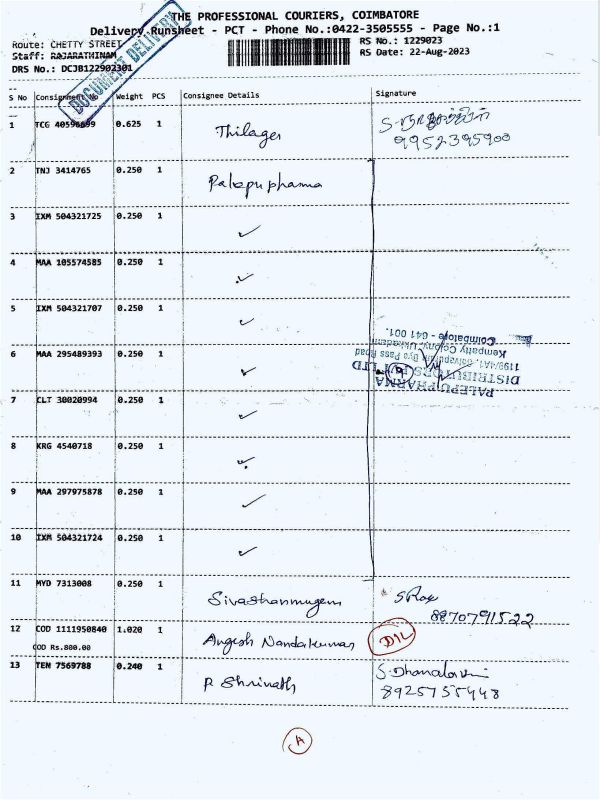 THE PROFESSIONAL COURIERS, COIMBATORE
Delivery Runsheet - PCT - Phone No.:0422-3505555 - Page No.:1
Route: CHETTY STREET
RS No.: 1229023
Staff: RAJARATHINAM
RS Date: 22-Aug-2023
DRS No.: DCJB122902301
DOCUMENT DELIVERY
S No Consignment No Weight PCS Consignee Details Signature
1 TCG 40596699 0.625 1 Thilager
9952395900
2 TNJ 3414765 0.250 1 Palepu pharma
3 IXM 504321725 0.250 1 ✓
4 MAA 105574585 0.250 1 ✓
5 IXM 504321707 0.250 1 ✓
6 MAA 295489393 0.250 1 ✓
PALEPU PHARMA
DISTRIBUTORS LTD
1199/4A1, Bye Pass Road
Kempatty Colony, Ukkadam
Coimbatore - 641 001.
7 CLT 30020994 0.250 1 ✓
8 KRG 4540718 0.250 1 ✓
9 MAA 297975878 0.250 1 ✓
10 IXM 504321724 0.250 1 ✓
11 MYD 7313008 0.250 1 Sivashanmugam
8870791522
12 COD 1111950840 1.020 1 Angesh Nandakumar D1L
COD Rs.800.00
13 TEN 7569788 0.240 1 P Shrinath
8925755448
A